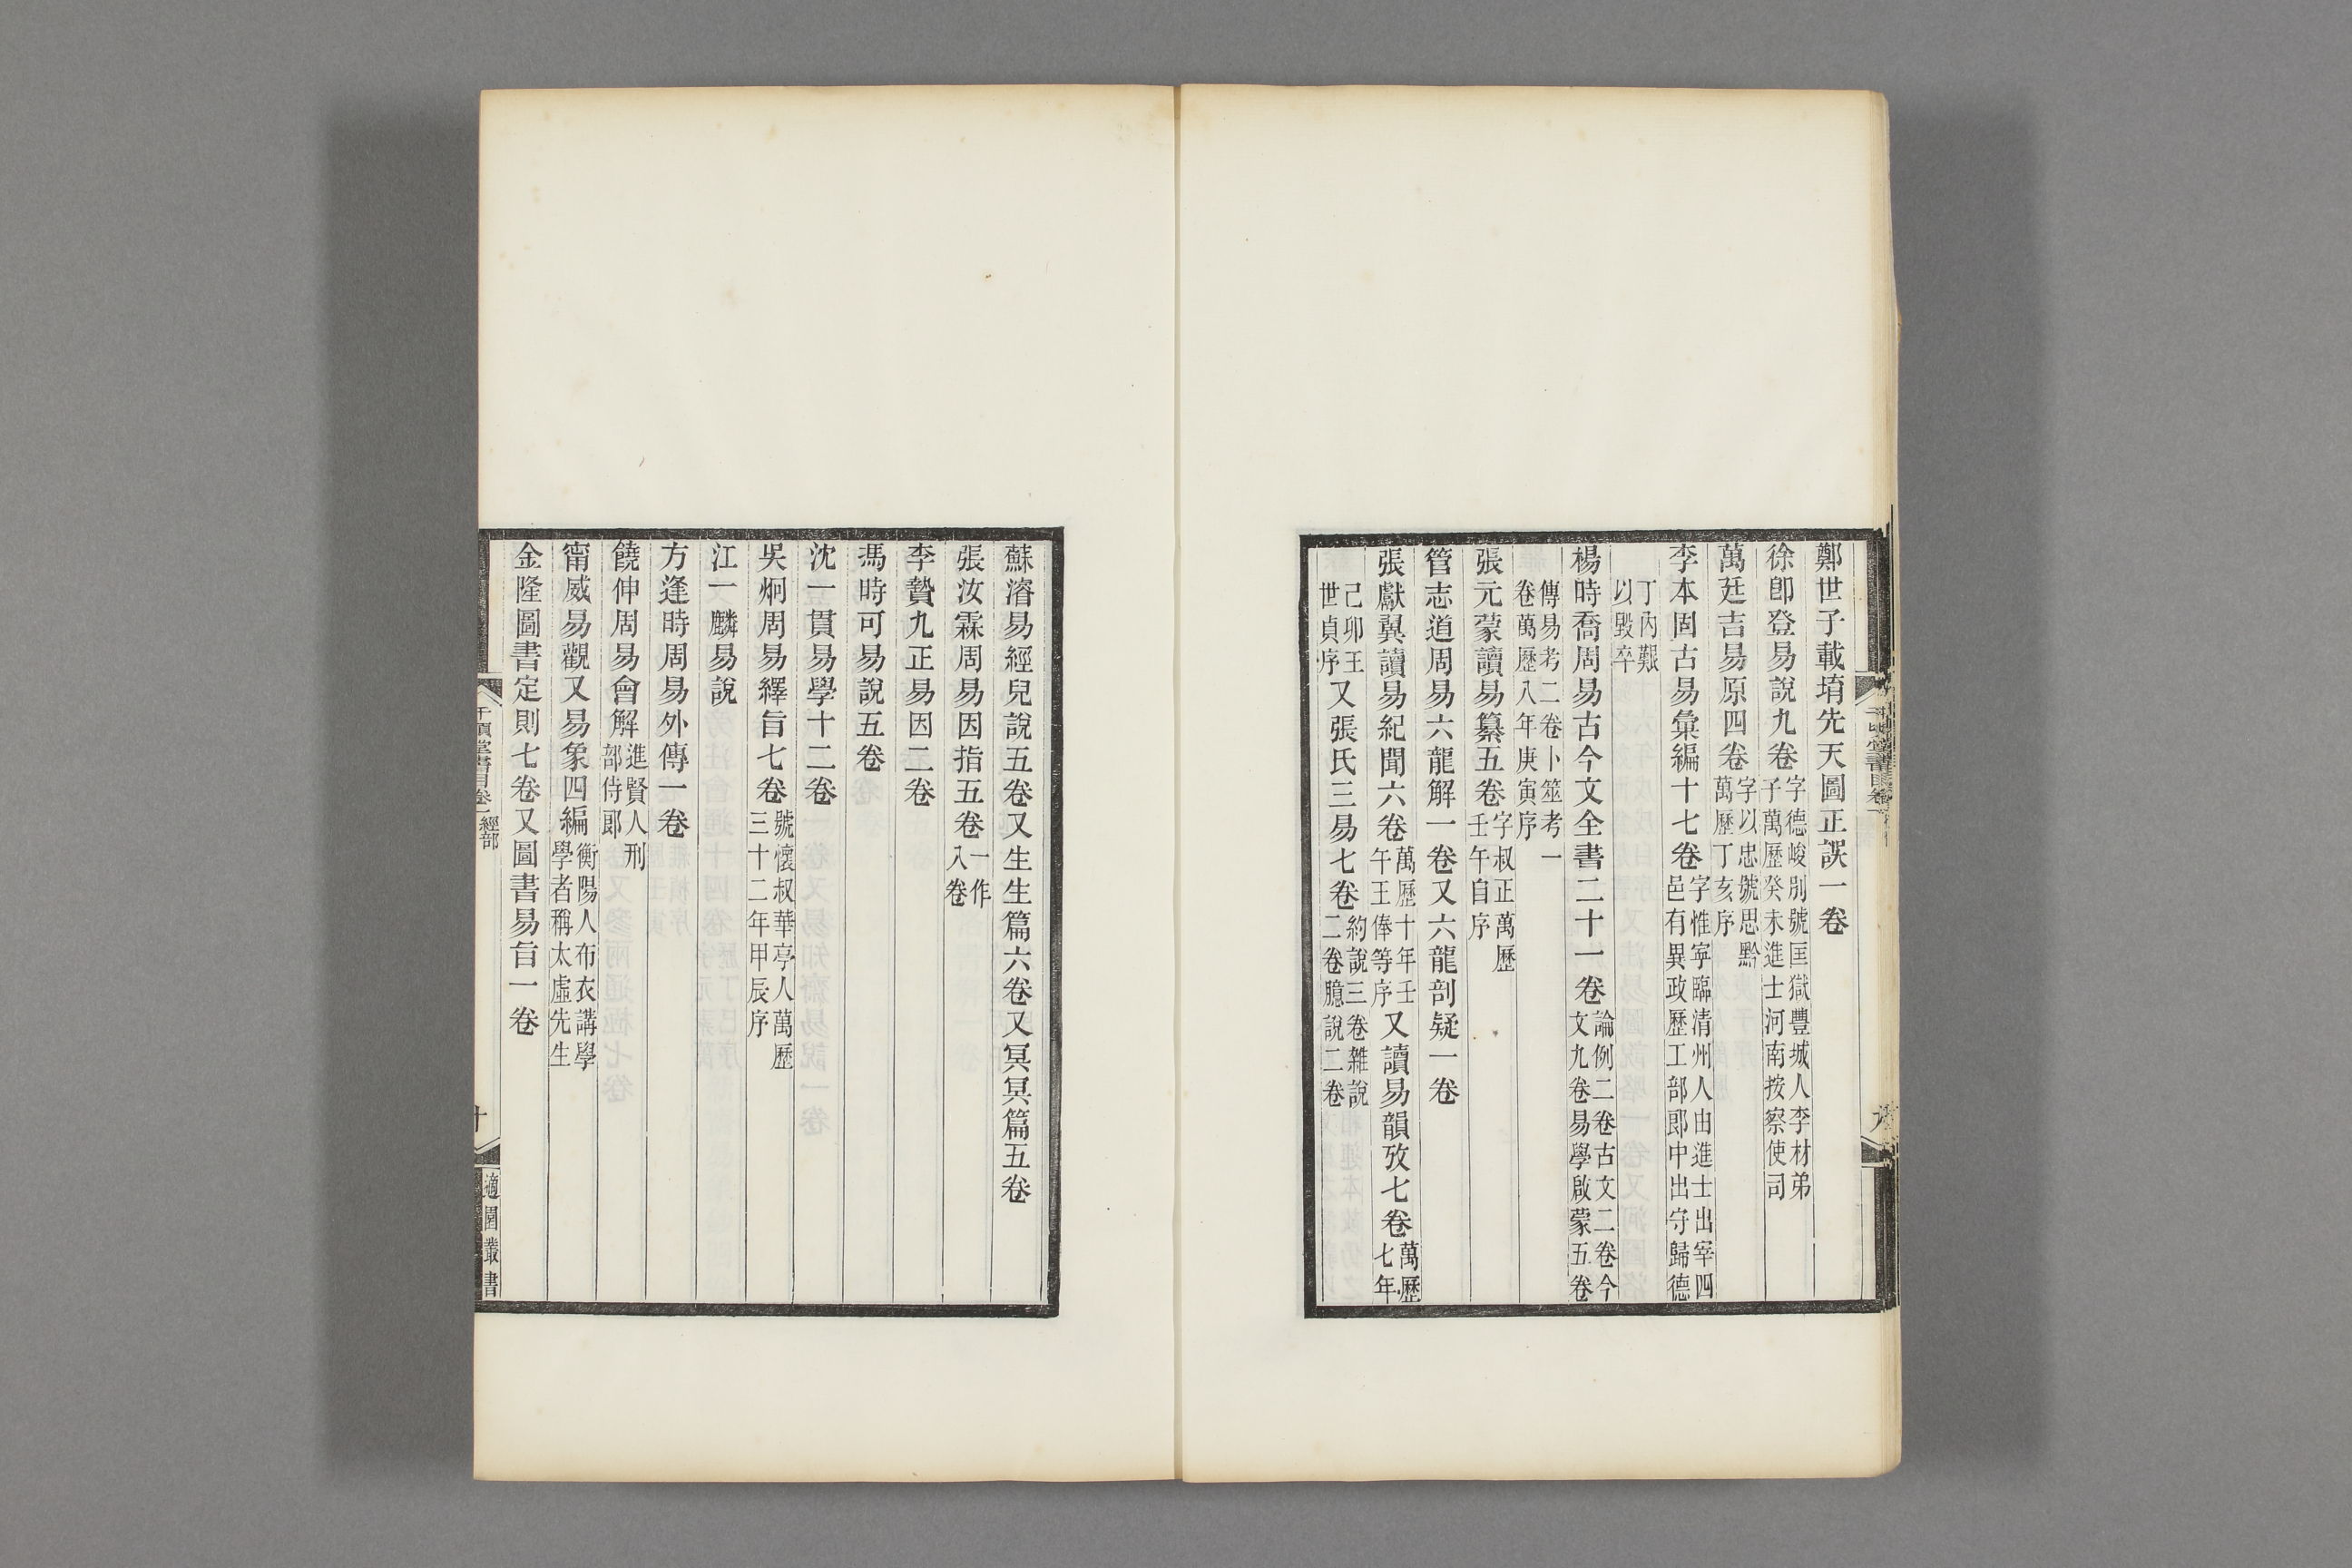 鄭世子載堉先天圖正誤一卷
徐卽登易說九卷字德峻別號匡嶽豐城人李材弟子萬歷癸未進士河南按察使司
萬廷吉易原四卷字以忠號思黔萬歷丁亥序
李本固古易彙編十七卷字惟寧臨清州人由進士出宰四邑有異政歷工部郎中出守歸德
丁內艱以毀卒
楊時喬周易古今文全書二十一卷論例二卷古文二卷今文九卷易學啟蒙五卷
傳易考二卷卜筮考一卷萬歷八年庚寅序
張元蒙讀易纂五卷字叔正萬歷壬午自序
管志道周易六龍解一卷又六龍剖疑一卷
張獻翼讀易紀聞六卷萬歷十年壬午王俸等序又讀易韻攷七卷萬歷七年
己卯王世貞序又張氏三易七卷約說三卷雜說二卷臆說二卷
蘇濬易經兒說五卷又生生篇六卷又冥冥篇五卷
張汝霖周易因指五卷一作八卷
李贄九正易因二卷
馮時可易說五卷
沈一貫易學十二卷
吳炯周易繹旨七卷號懷叔華亭人萬歷三十二年甲辰序
江一麟易說
方逢時周易外傳一卷
饒伸周易會解進賢人刑部侍郎
甯威易觀又易象四編衡陽人布衣講學學者稱太虛先生
金隆圖書定則七卷又圖書易旨一卷
千頃堂書目卷一 經部
十
適園叢書